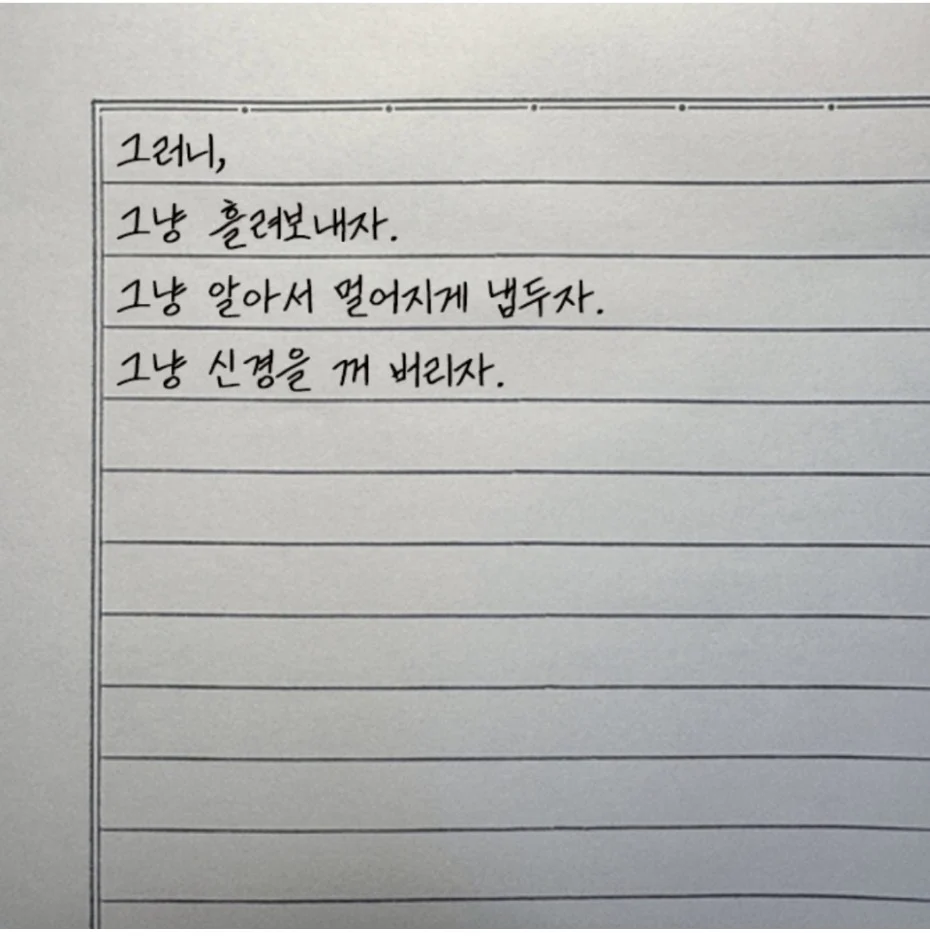 그러니,
그냥 흘려보내자.
그냥 알아서 멀어지게 냅두자.
그냥 신경을 꺼 버리자.